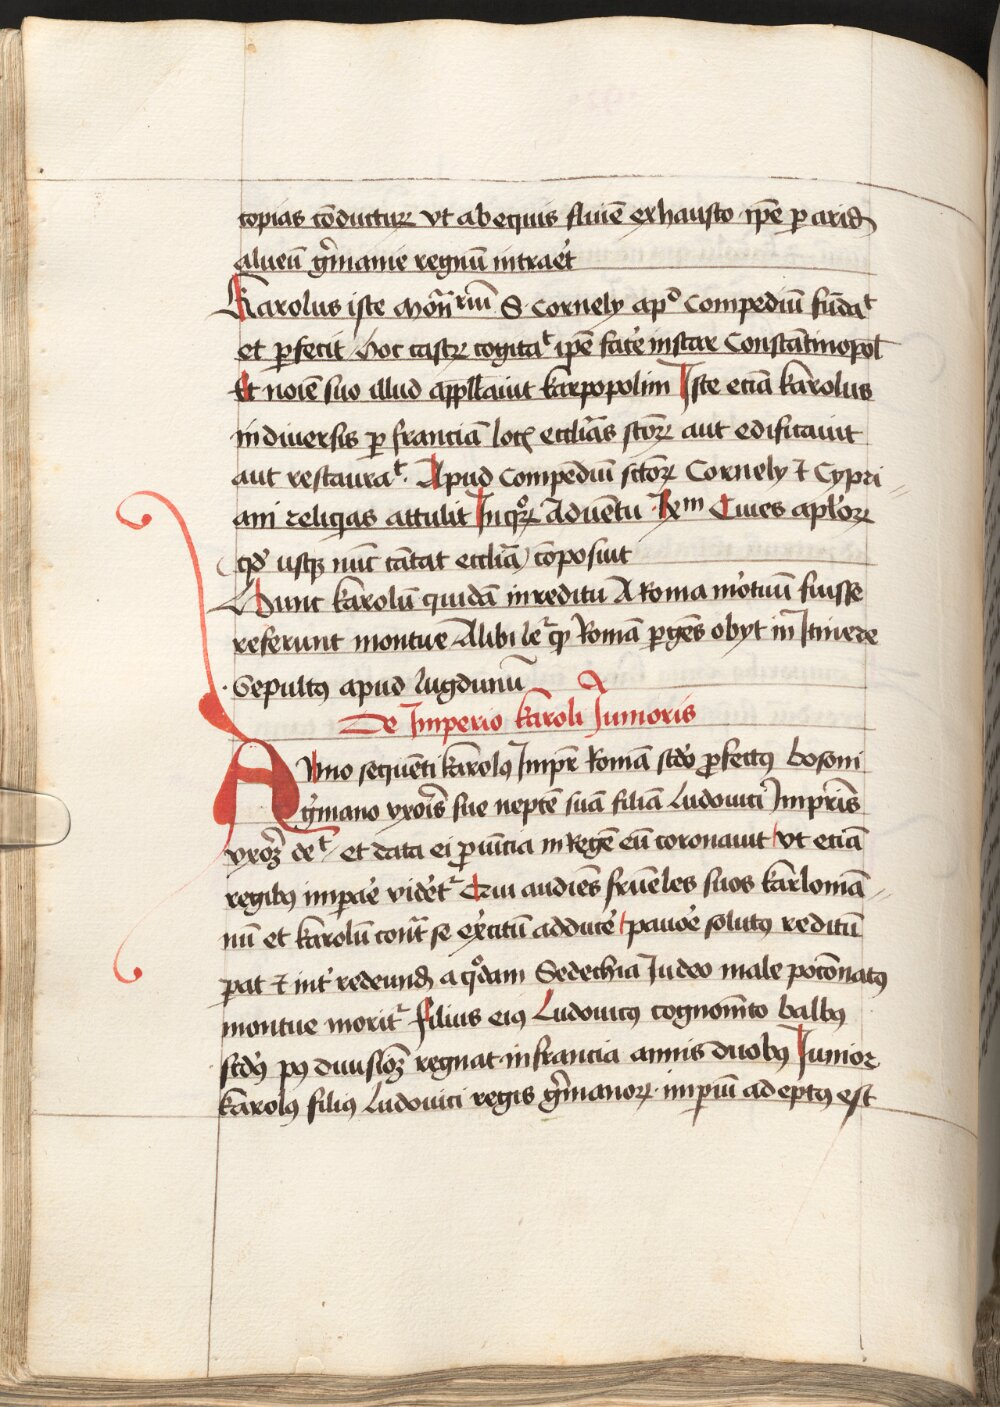 copias cōducturꝝ vt ab equis fluiē exhausto ip̄e ꝑ aridū
alueū gr̄manie regnū intraēt
Karolus iste Mōnariū S. Cornely apᵒ Compediū fūdaᵗ
et ꝑfecit Hoc castrꝝ cogitaᵗ ip̄e facēr instar Constātinopol
Et noīe suo illud appllauit karpopolim Iste etiā karolus
in diuersis ꝑ franciā locꝭ ecclīas sctōrꝝ aut edificauit
aut restauraᵗ. Apud Compēdiū sctōrꝝ Cornely ⁊ Cypri
ani reliq̄as attulit In qͦrꝝ Aduētu Rᵐ Ciues aplōrꝝ
qd̓ usqꝫ nūc cātat ecclīa cōposuit
Hunc karolū quidā in reditu A Roma mōtuū fuisse
referunt montue Alibi leᵗ qꝫ Romā ꝑgēs obyt in Itinere
Sepultꝰ apud lugdunū
De Imperio karoli Iunioris
ANno sequēti karolꝰ Imꝑr Romā scd̓o ꝓfectꝰ bosoni
gr̄mano vxoīs sue neptē suā filiā Ludouici Impr̄is
vxorꝫ deᵗ et data ei ꝓuīcia in Regē eū coronauit vt etiā
regibꝰ imꝑaē videt̄ Qui audiēs fr̄ueles suos karlomā
nū et karolū cont̄ se ex̄citū adducē pauoē solutꝰ reditū
ꝑat ⁊ int̄ redeundū a qͦdam Sedechia Iudeo male potōnatꝰ
montue morit̄ filius eiꝰ Ludouicꝰ cognomīto balbꝰ
scd̓ꝰ pꝰ diuisiōꝫ regnat in francia annis duobꝰ Iunior
karolꝰ filiꝰ Ludouici regis gr̄manorꝝ imꝑiū adeptꝰ est